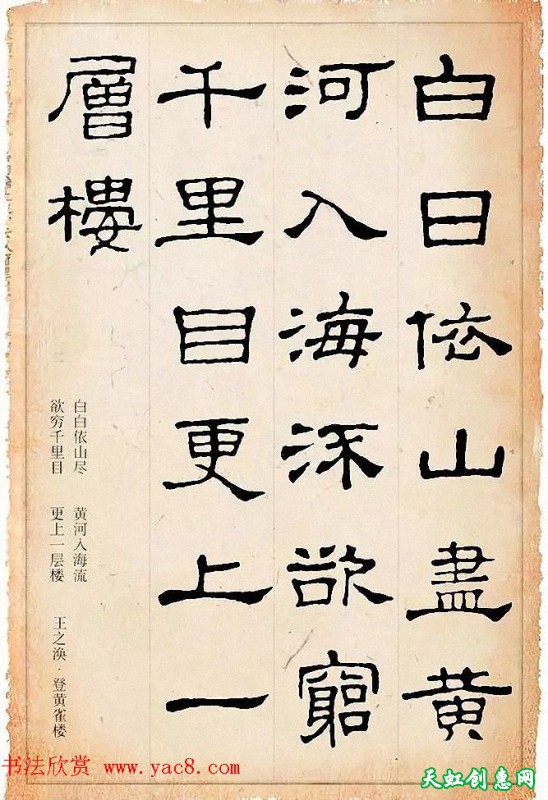 白日依山盡黄
河入海流欲窮
千里目更上一
層樓
白白依山尽 黄河入海流
欲穷千里目 更上一层楼
王之涣·登黄雀楼
书法欣赏 www.yac8.com
天虹创惠网